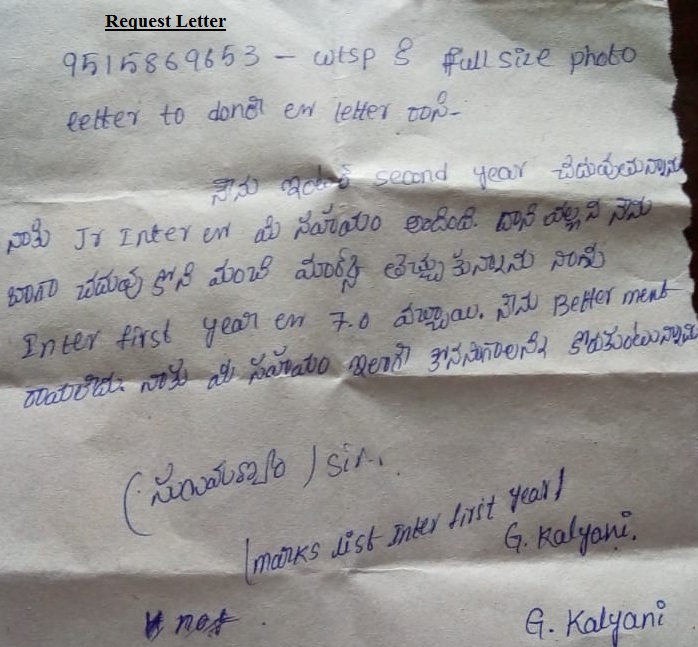 Request Letter
9515869653 - wtsp కి full size photo
letter to donar ew letter రాసి-
నేను ఇంటర్ second year చదువుతున్నాను
నాకు Jr Inter ew మీ సహాయం అందింది. దాని వల్లన నేను
బాగా చదువు కొని మంచి మార్క్స్ తెచ్చు కున్నాను నాకు
Inter first year ew 7.0 వచ్చాయి. నేను Better ment
రాయలేదు. నాకు మీ సహాయం ఇలాగే కొనసాగాలని కోరుకుంటున్నాను
) sir.
(marks list Inter first year)
G. Kalyani.
not.
G. Kalyani